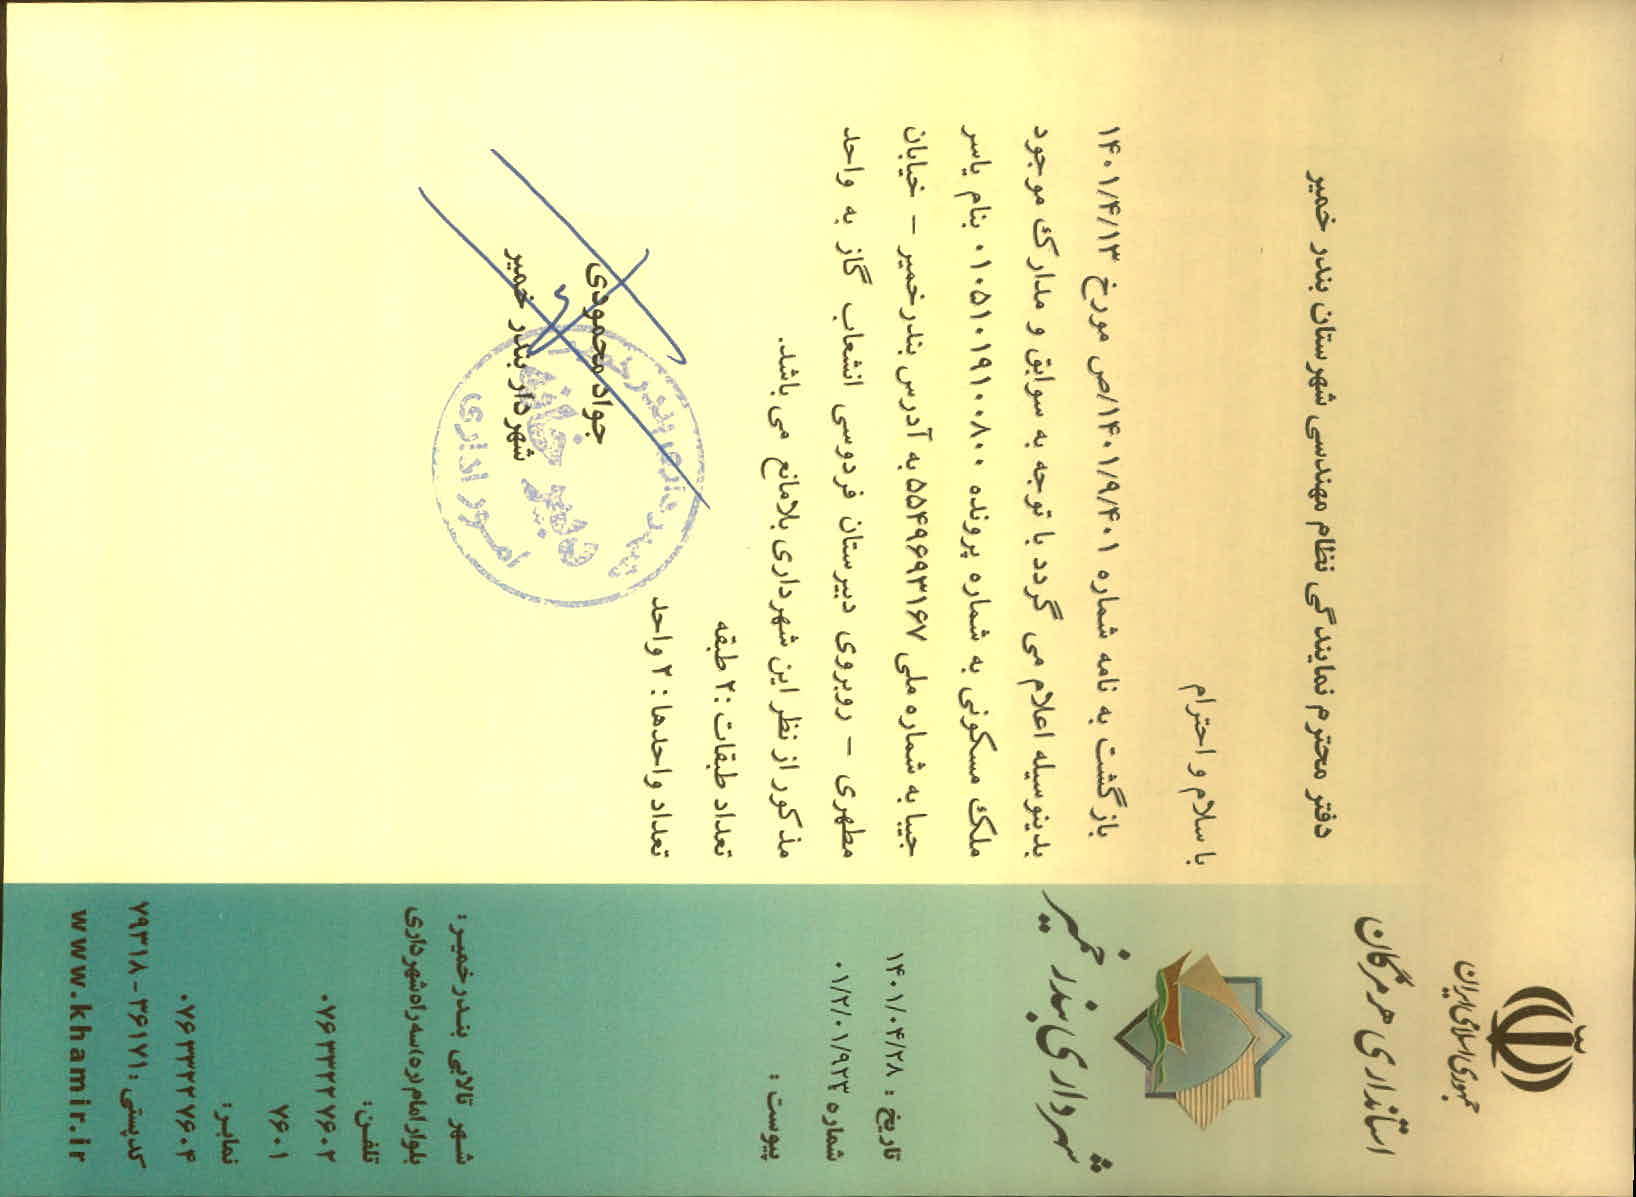 جمهوری اسلامی ایران
استانداری هرمزگان
شهرداری بندر خمیر
تاریخ : ۱۴۰۱/۰۴/۲۸
شماره ۰۱/۲/۰۱/۹۲۳
پیوست :
دفتر محترم نمایندگی نظام مهندسی شهرستان بندر خمیر
با سلام و احترام
بازگشت به نامه شماره ۱۴۰۱/۹/۴۰۱/ص مورخ ۱۴۰۱/۴/۱۳
بدینوسیله اعلام می گردد با توجه به سوابق و مدارک موجود
ملک مسکونی به شماره پرونده ۰۱۰۵۱۰۱۹۱۰۰۸۰۰ بنام یاسر
جیبا به شماره ملی ۵۵۴۹۶۹۳۱۶۷ به آدرس بندرخمیر – خیابان
مطهری – روبروی دبیرستان فردوسی انشعاب گاز به واحد
مذکور از نظر این شهرداری بلامانع می باشد.
تعداد طبقات : ۲ طبقه
تعداد واحدها : ۲ واحد
جواد محمودی
شهردار بندر خمیر
شهرداری بندر خمیر
دبیرخانه
امور اداری
شهر تالابی بندرخمیر:
بلوار امام(ره)سه راه شهرداری
تلفن:
۰۷۶۳۳۲۲۷۶۰۲
۷۶۰۱
نمابر:
۰۷۶۳۳۲۲۷۶۰۴
کدپستی : ۳۶۱۷۱ - ۷۹۳۱۸
www.khamir.ir